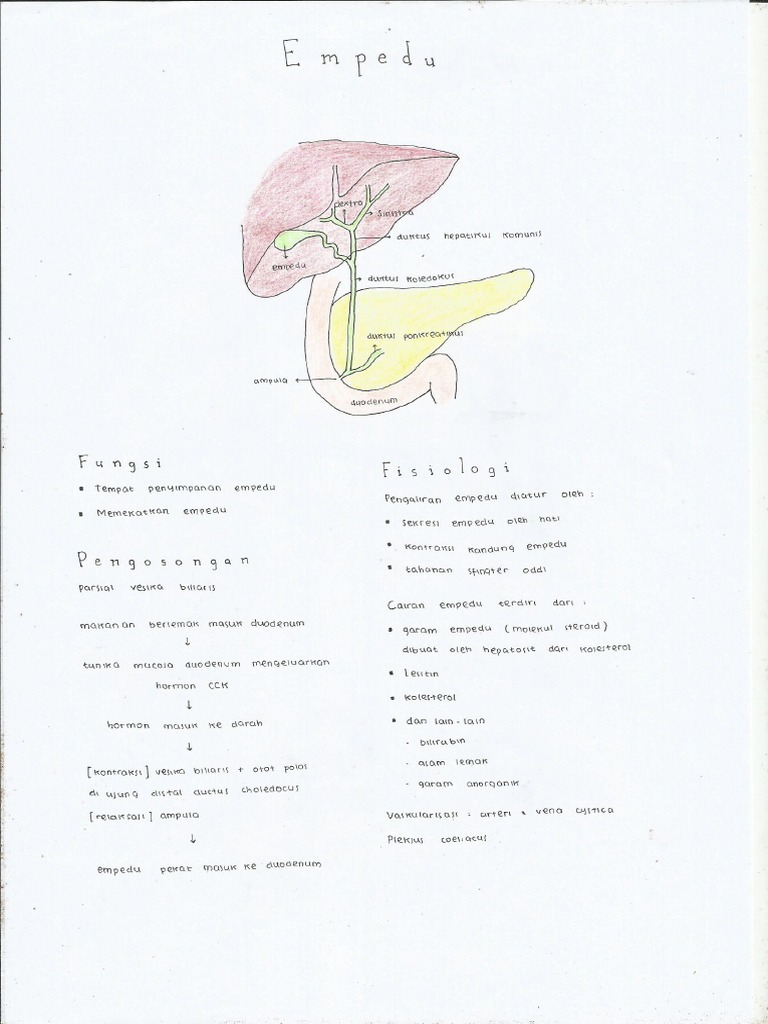 Empedu
dextra
sinistra
duktus hepatikus komunis
empedu
duktus koledokus
duktus pankreatikus
ampula
duodenum
Fungsi
• Tempat penyimpanan empedu
• Memekatkan empedu
Pengosongan
parsial vesika biliaris
makanan berlemak masuk duodenum
↓
tunika mucosa duodenum mengeluarkan
hormon CCK
↓
hormon masuk ke darah
↓
[kontraksi] vesika biliaris + otot polos
di ujung distal ductus choledocus
[relaksasi] ampula
↓
empedu pekat masuk ke duodenum
Fisiologi
Pengaliran empedu diatur oleh :
• sekresi empedu oleh hati
• kontraksi kandung empedu
• tahanan sfingter oddi
Cairan empedu terdiri dari :
• garam empedu (molekul steroid)
dibuat oleh hepatosit dari kolesterol
• lesitin
• kolesterol
• dan lain-lain
- bilirubin
- asam lemak
- garam anorganik
Vaskularisasi : arteri & vena cystica
Pleksus coeliacus